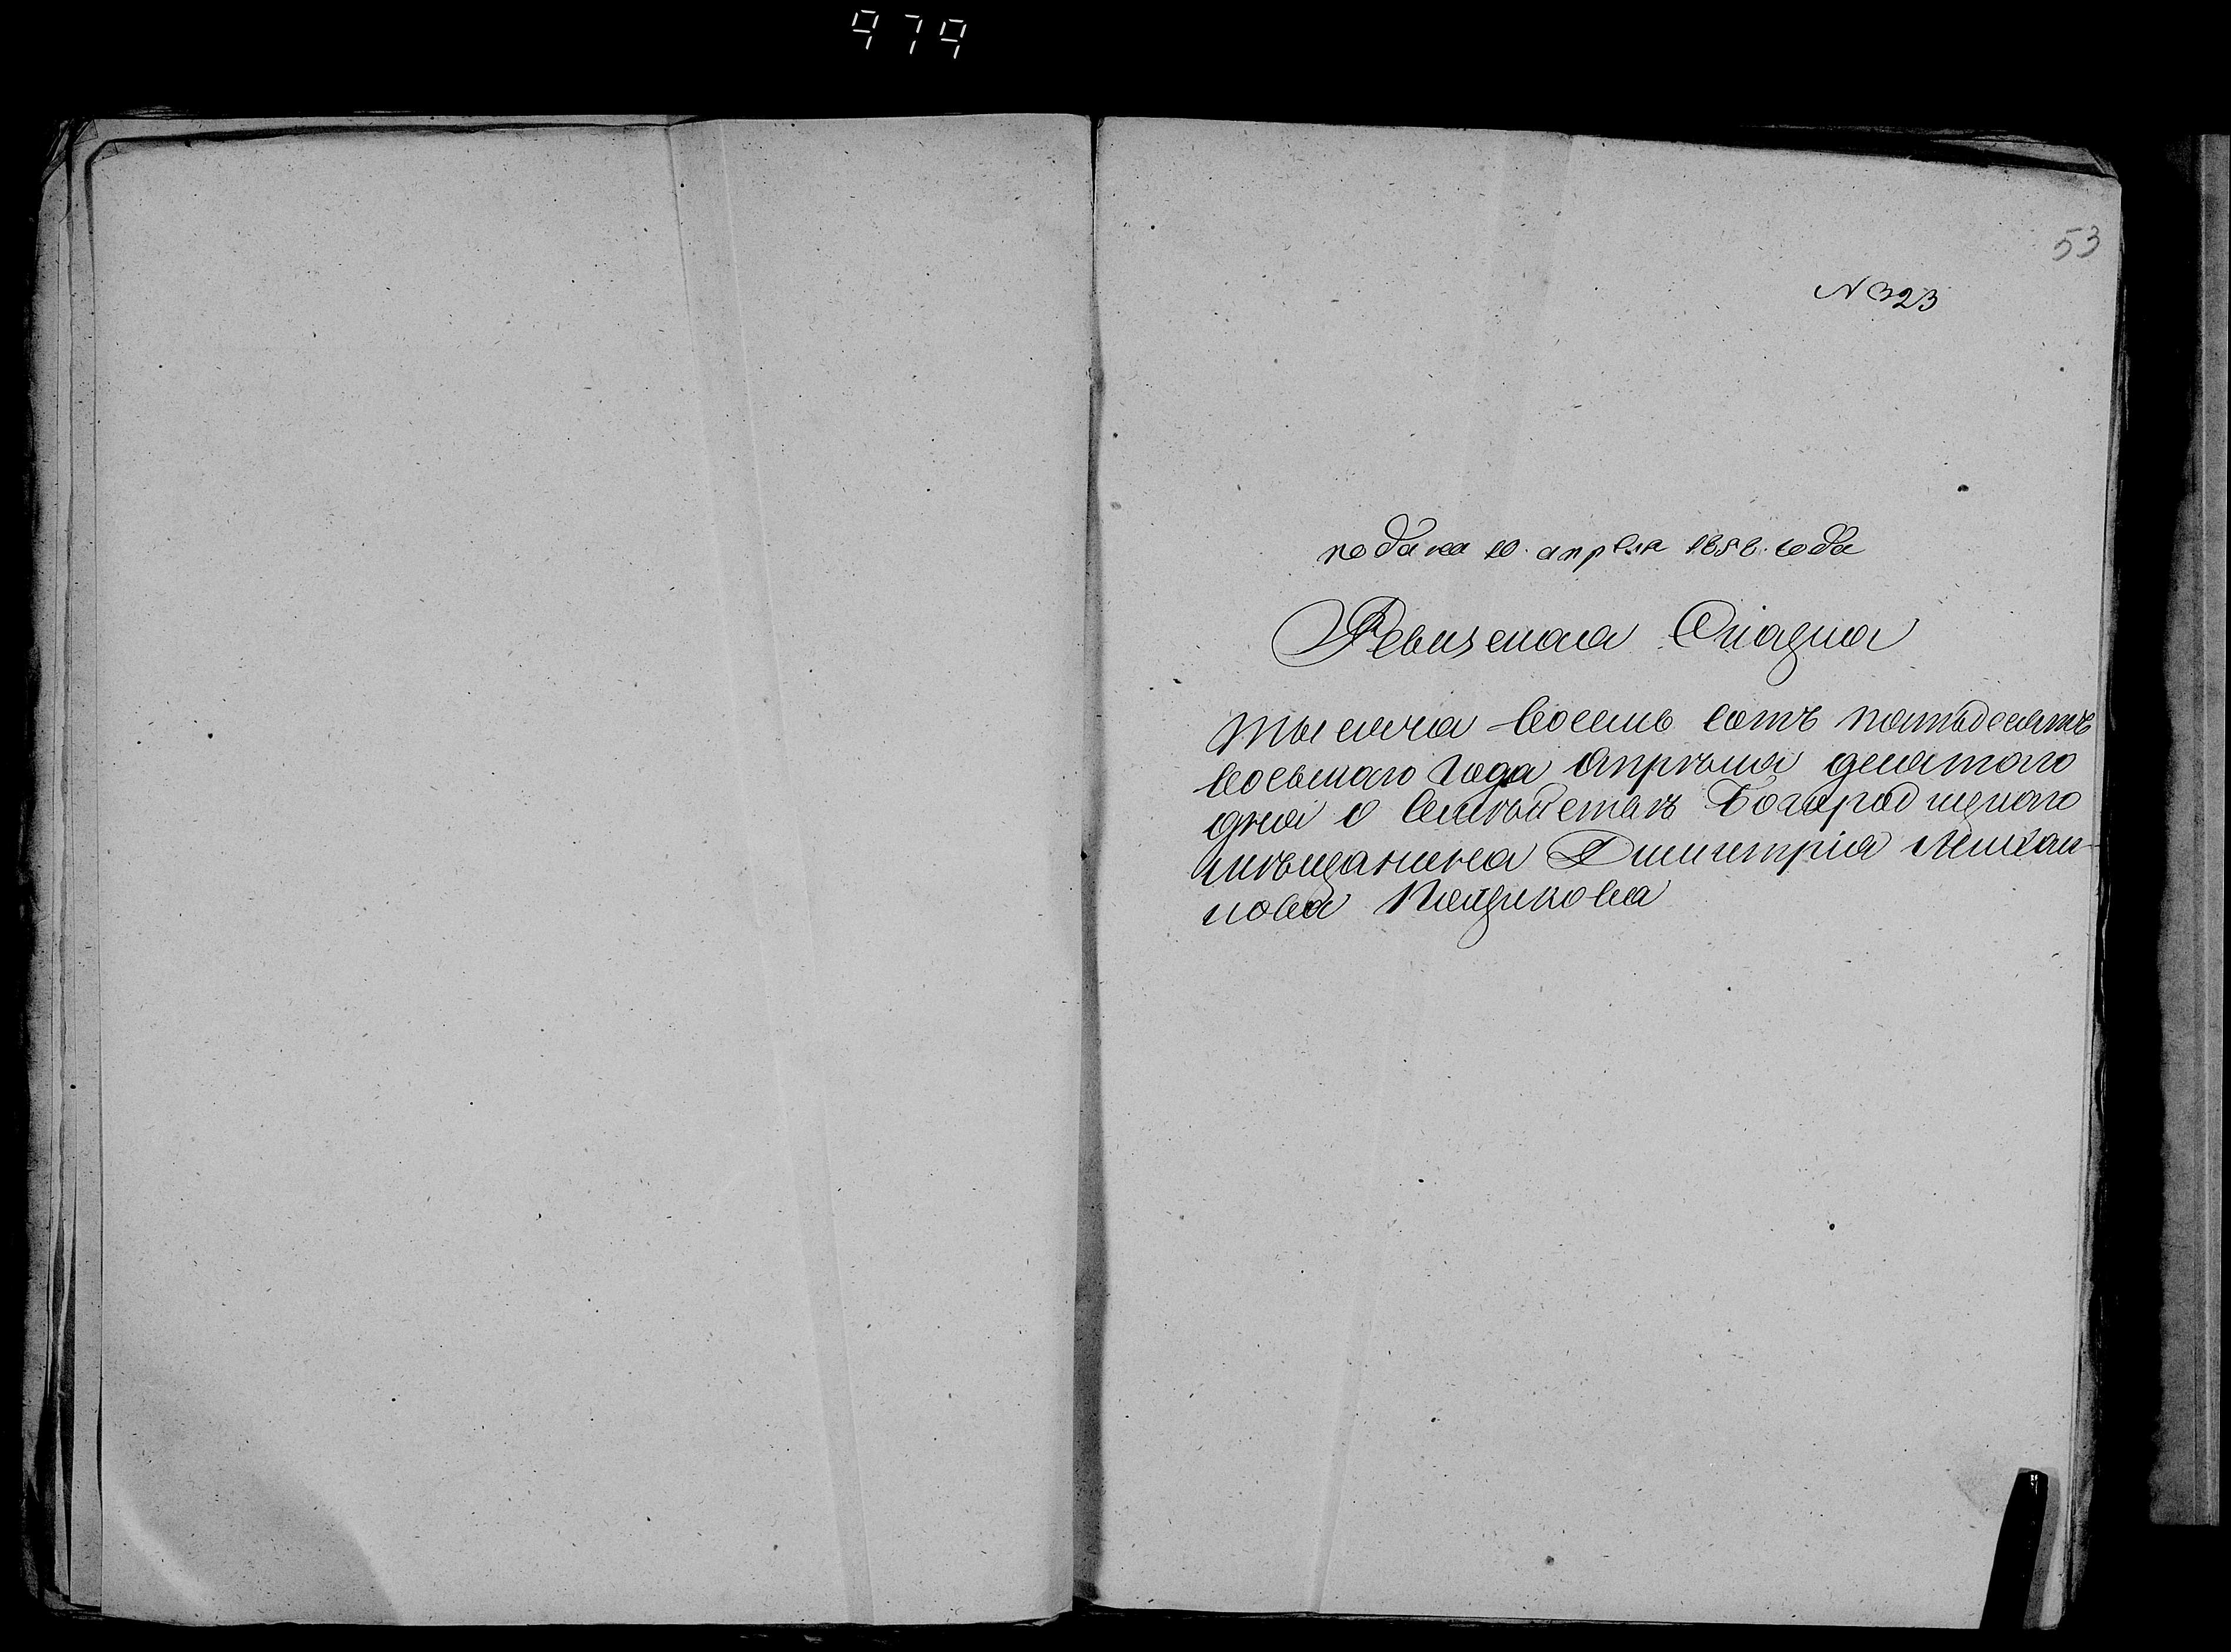 979
53
N 323
подана 10. апреля 1858. года
Ревизская Сказка
Тысяча восемь сотъ пятьдесятъ
восьмаго года Апрѣля десятаго
дня о семѣйствѣ Богородицкаго
мѣщанина Дмитрія Михаи-
лова